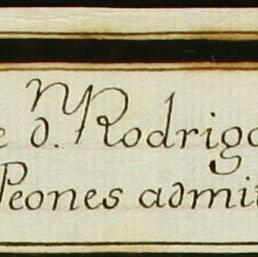 e d.n Rodrigo
Peones admit